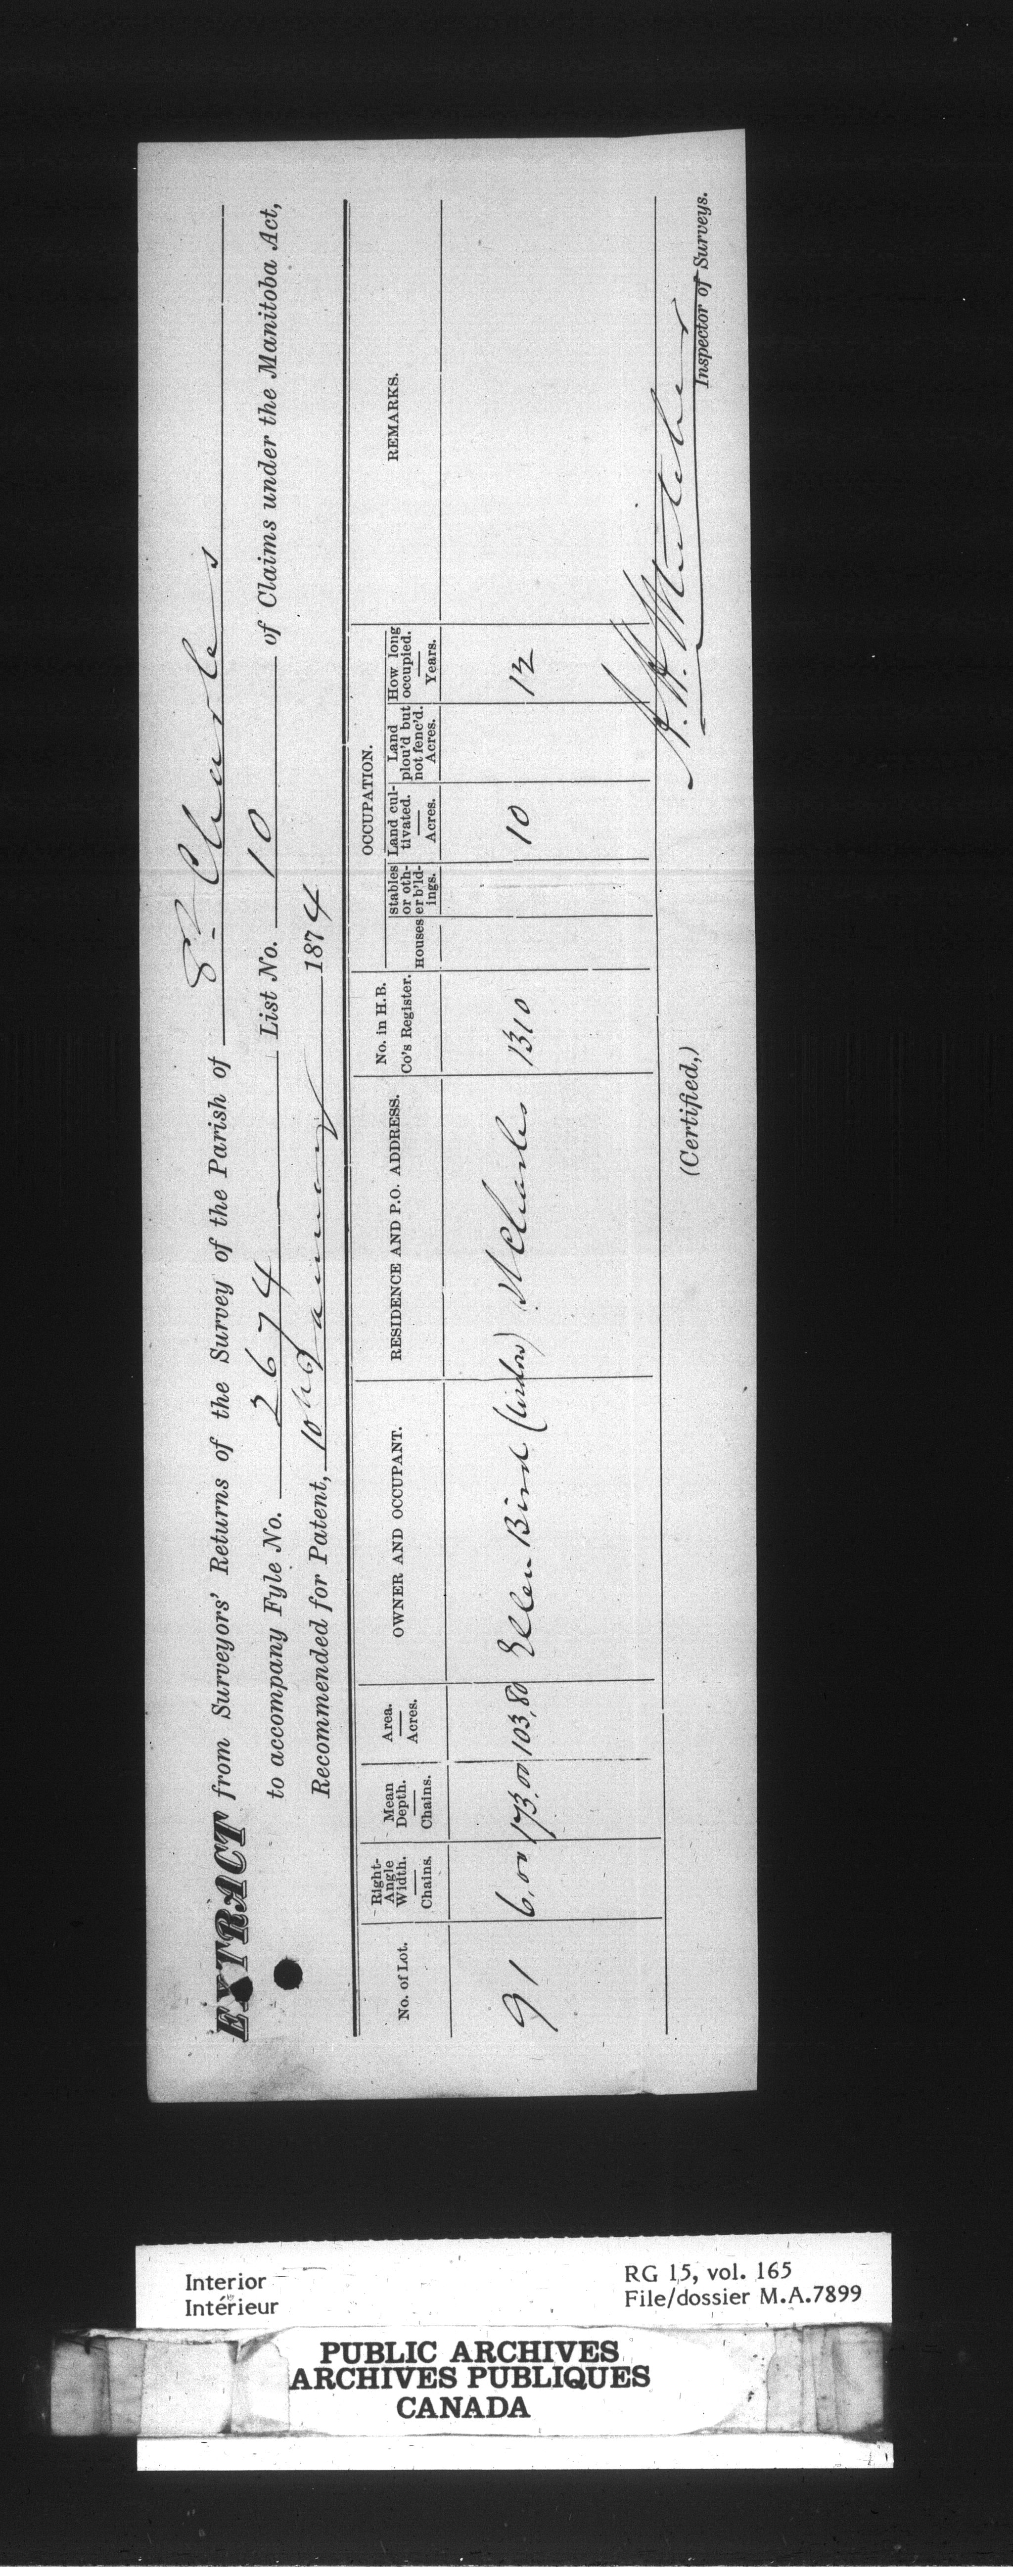 EXTRACT from Surveyors' Returns of the Survey of the Parish of St Charles
to accompany Fyle No. 2674 List No. 10 of Claims under the Manitoba Act,
Recommended for Patent, 10th January 1874
No. of Lot.
Right-Angle Width. Chains.
Mean Depth. Chains.
Area. Acres.
OWNER AND OCCUPANT.
RESIDENCE AND P.O. ADDRESS.
No. in H.B. Co's Register.
OCCUPATION.
Houses
Stables or other b'ldings.
Land cultivated. Acres.
Land plou'd but not fenc'd. Acres.
How long occupied. Years.
REMARKS.
91 6,00 173,00 103,80 Ellen Bird (Widow) St Charles 1310 10 12
(Certified,)
Inspector of Surveys.
Interior
Intérieur
RG 15, vol. 165
File/dossier M.A.7899
PUBLIC ARCHIVES
ARCHIVES PUBLIQUES
CANADA